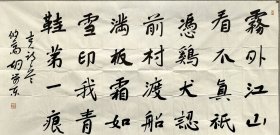 霧外江山
看不真祇
憑鷄犬認
前村渡船
滿板霜如
雪印我青
鞋第一痕